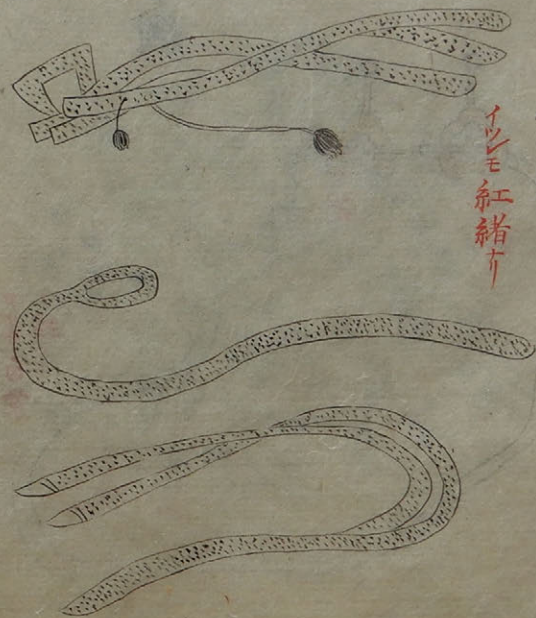 イツレモ紅緒ナリ